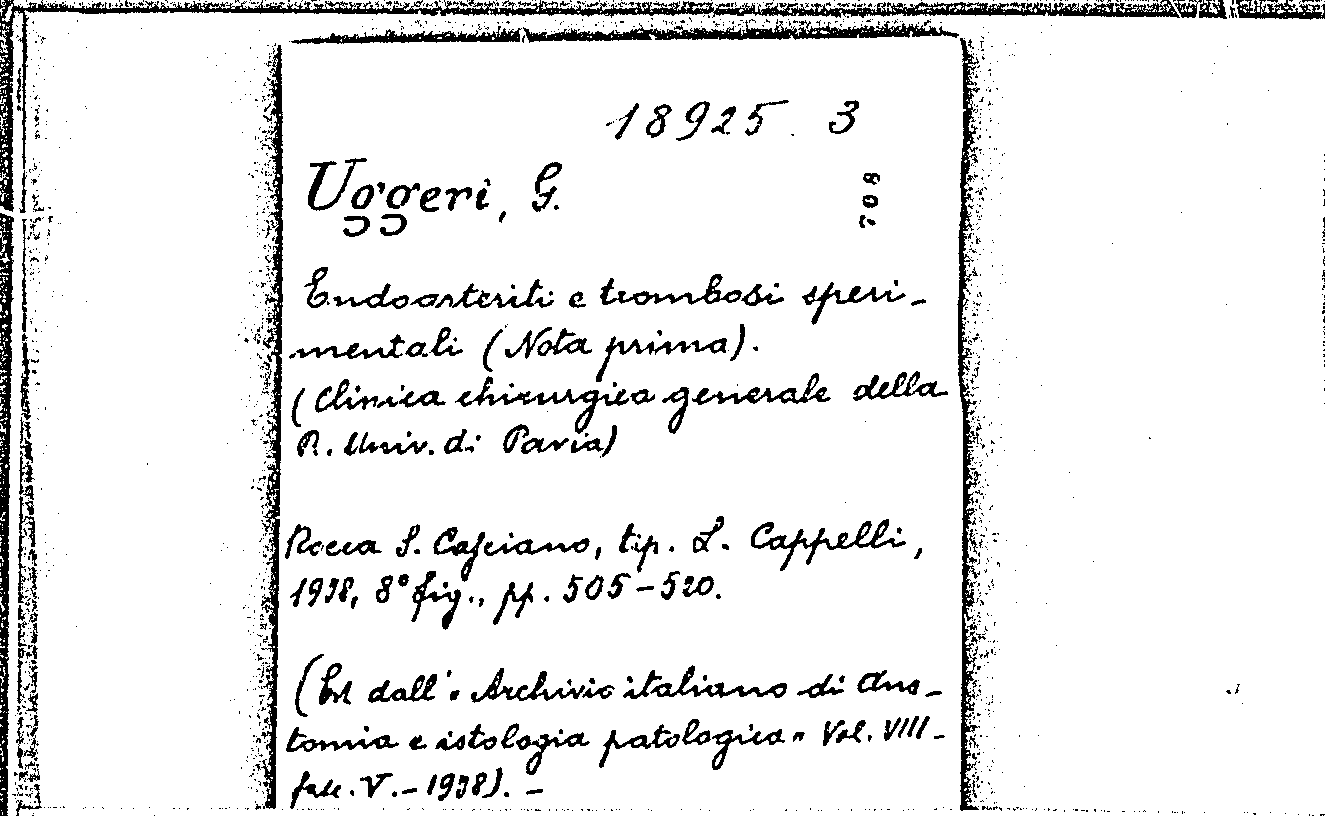 18925. 3
Uggeri, G.
708
Endoarteriti e trombosi speri-
mentali (Nota prima).
(Clinica chirurgica generale della
R. Univ. di Pavia)
Rocca S. Casciano, tip. L. Cappelli,
1938, 8° fig., pp. 505-520.
(Est dall' "Archivio italiano di Ana-
tomia e istologia patologica" Vol. VIII-
fasc. V. - 1938). -